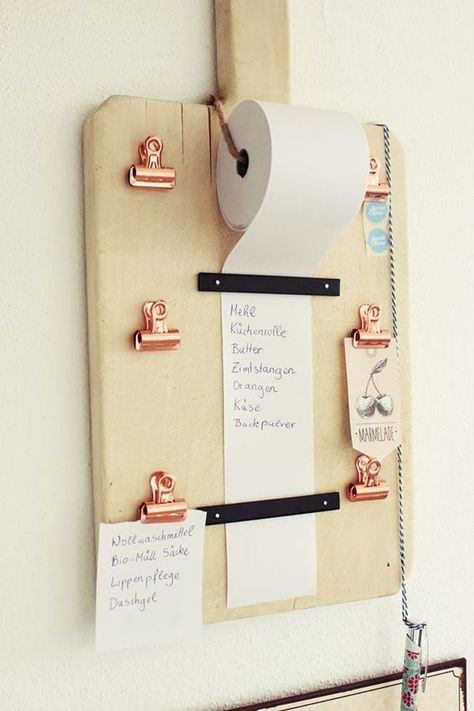 Mehl
Küchenrolle
Butter
Zimtstangen
Orangen
Käse
Backpulver
MARMELADE
Wollwaschmittel
Bio-Müll Säcke
Lippenpflege
Duschgel